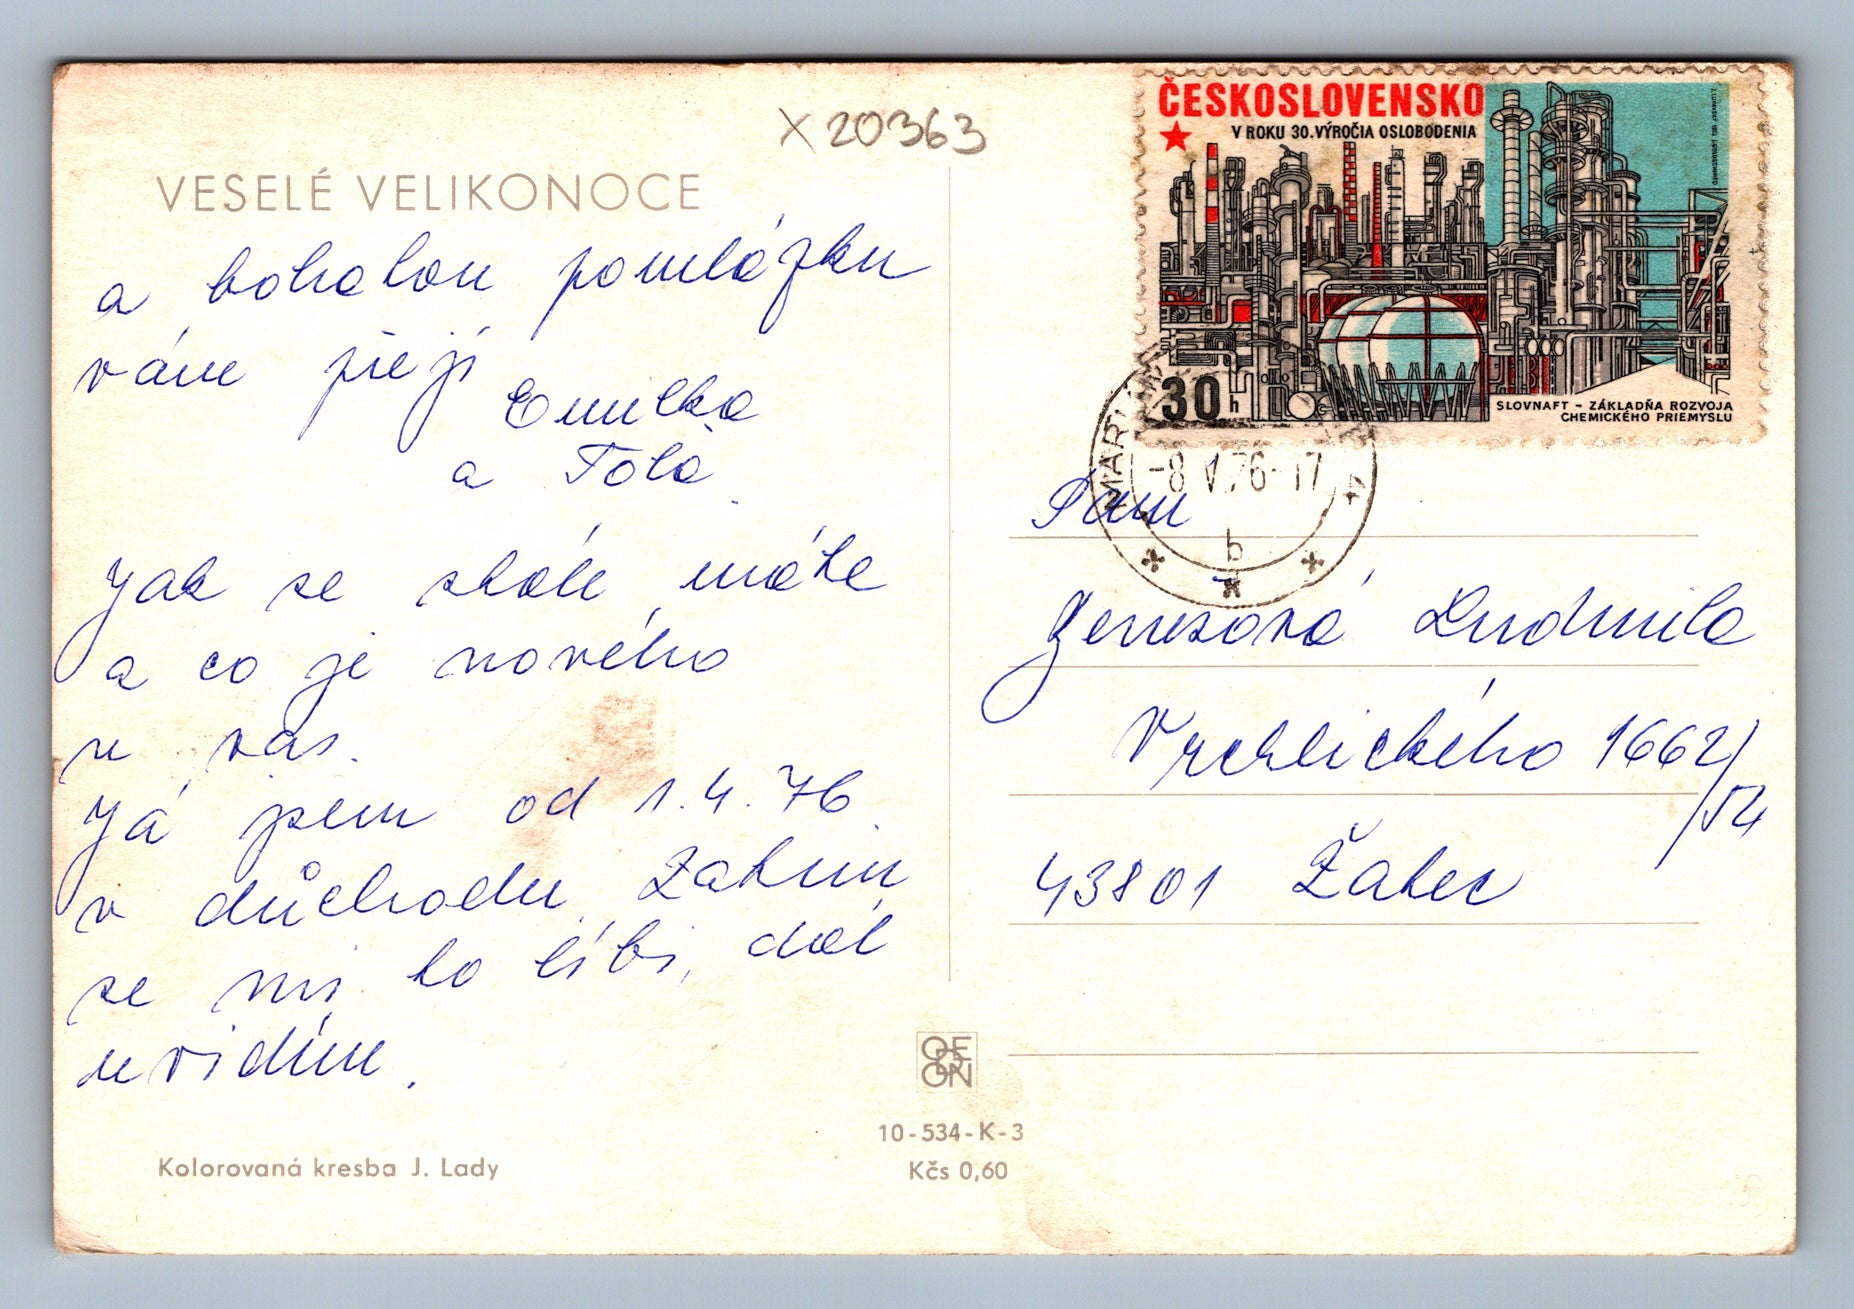 X20363
VESELÉ VELIKONOCE
a bohatou pomlázku
vám přejí
Emilka
a Tóla
Jak se stále máte
a co je nového
u vás.
Já jsem od 1.4.76
v důchodu. Zatím
se mi to líbí, dál
uvidím.
Kolorovaná kresba J. Lady
ODEON
10-534-K-3
Kčs 0,60
ČESKOSLOVENSKO
V ROKU 30. VÝROČIA OSLOBODENIA
30h
SLOVNAFT - ZÁKLADŇA ROZVOJA
CHEMICKÉHO PRIEMYSLU
-8.V.76-17
b
Paní
Ludmila
Vrchlického 1662/
/54
43801 Žatec